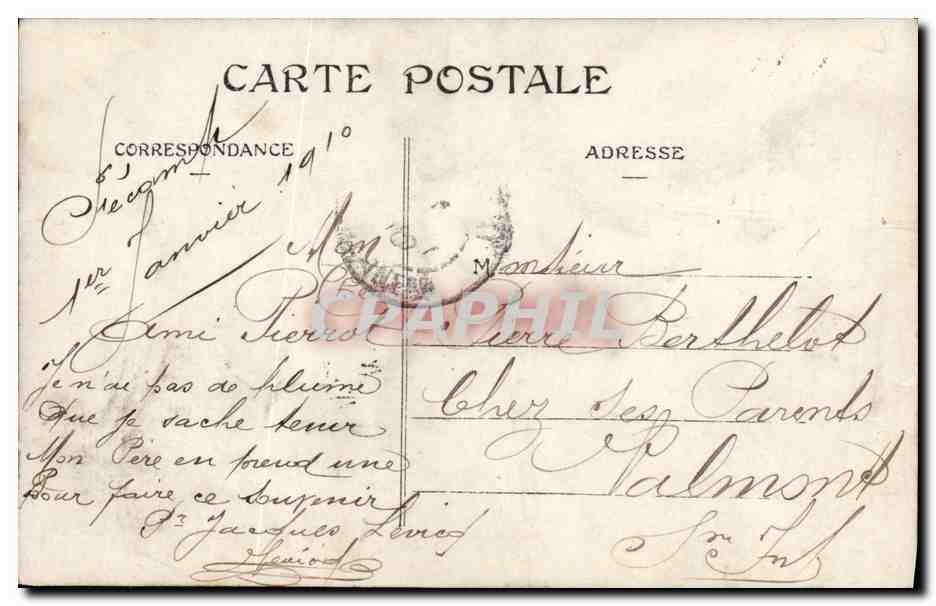 CARTE POSTALE
CORRESPONDANCE
ADRESSE
Fécamp
1er Janvier 1910
Mon
Ami Pierrot
Je n'ai pas de plume
Que je sache tenir
Mon Père en prend une
Pour faire ce souvenir
Pr Jacques
Monsieur
Pierre Berthelot
Chez ses Parents
Valmont
Sre Infre
CPAPHIL